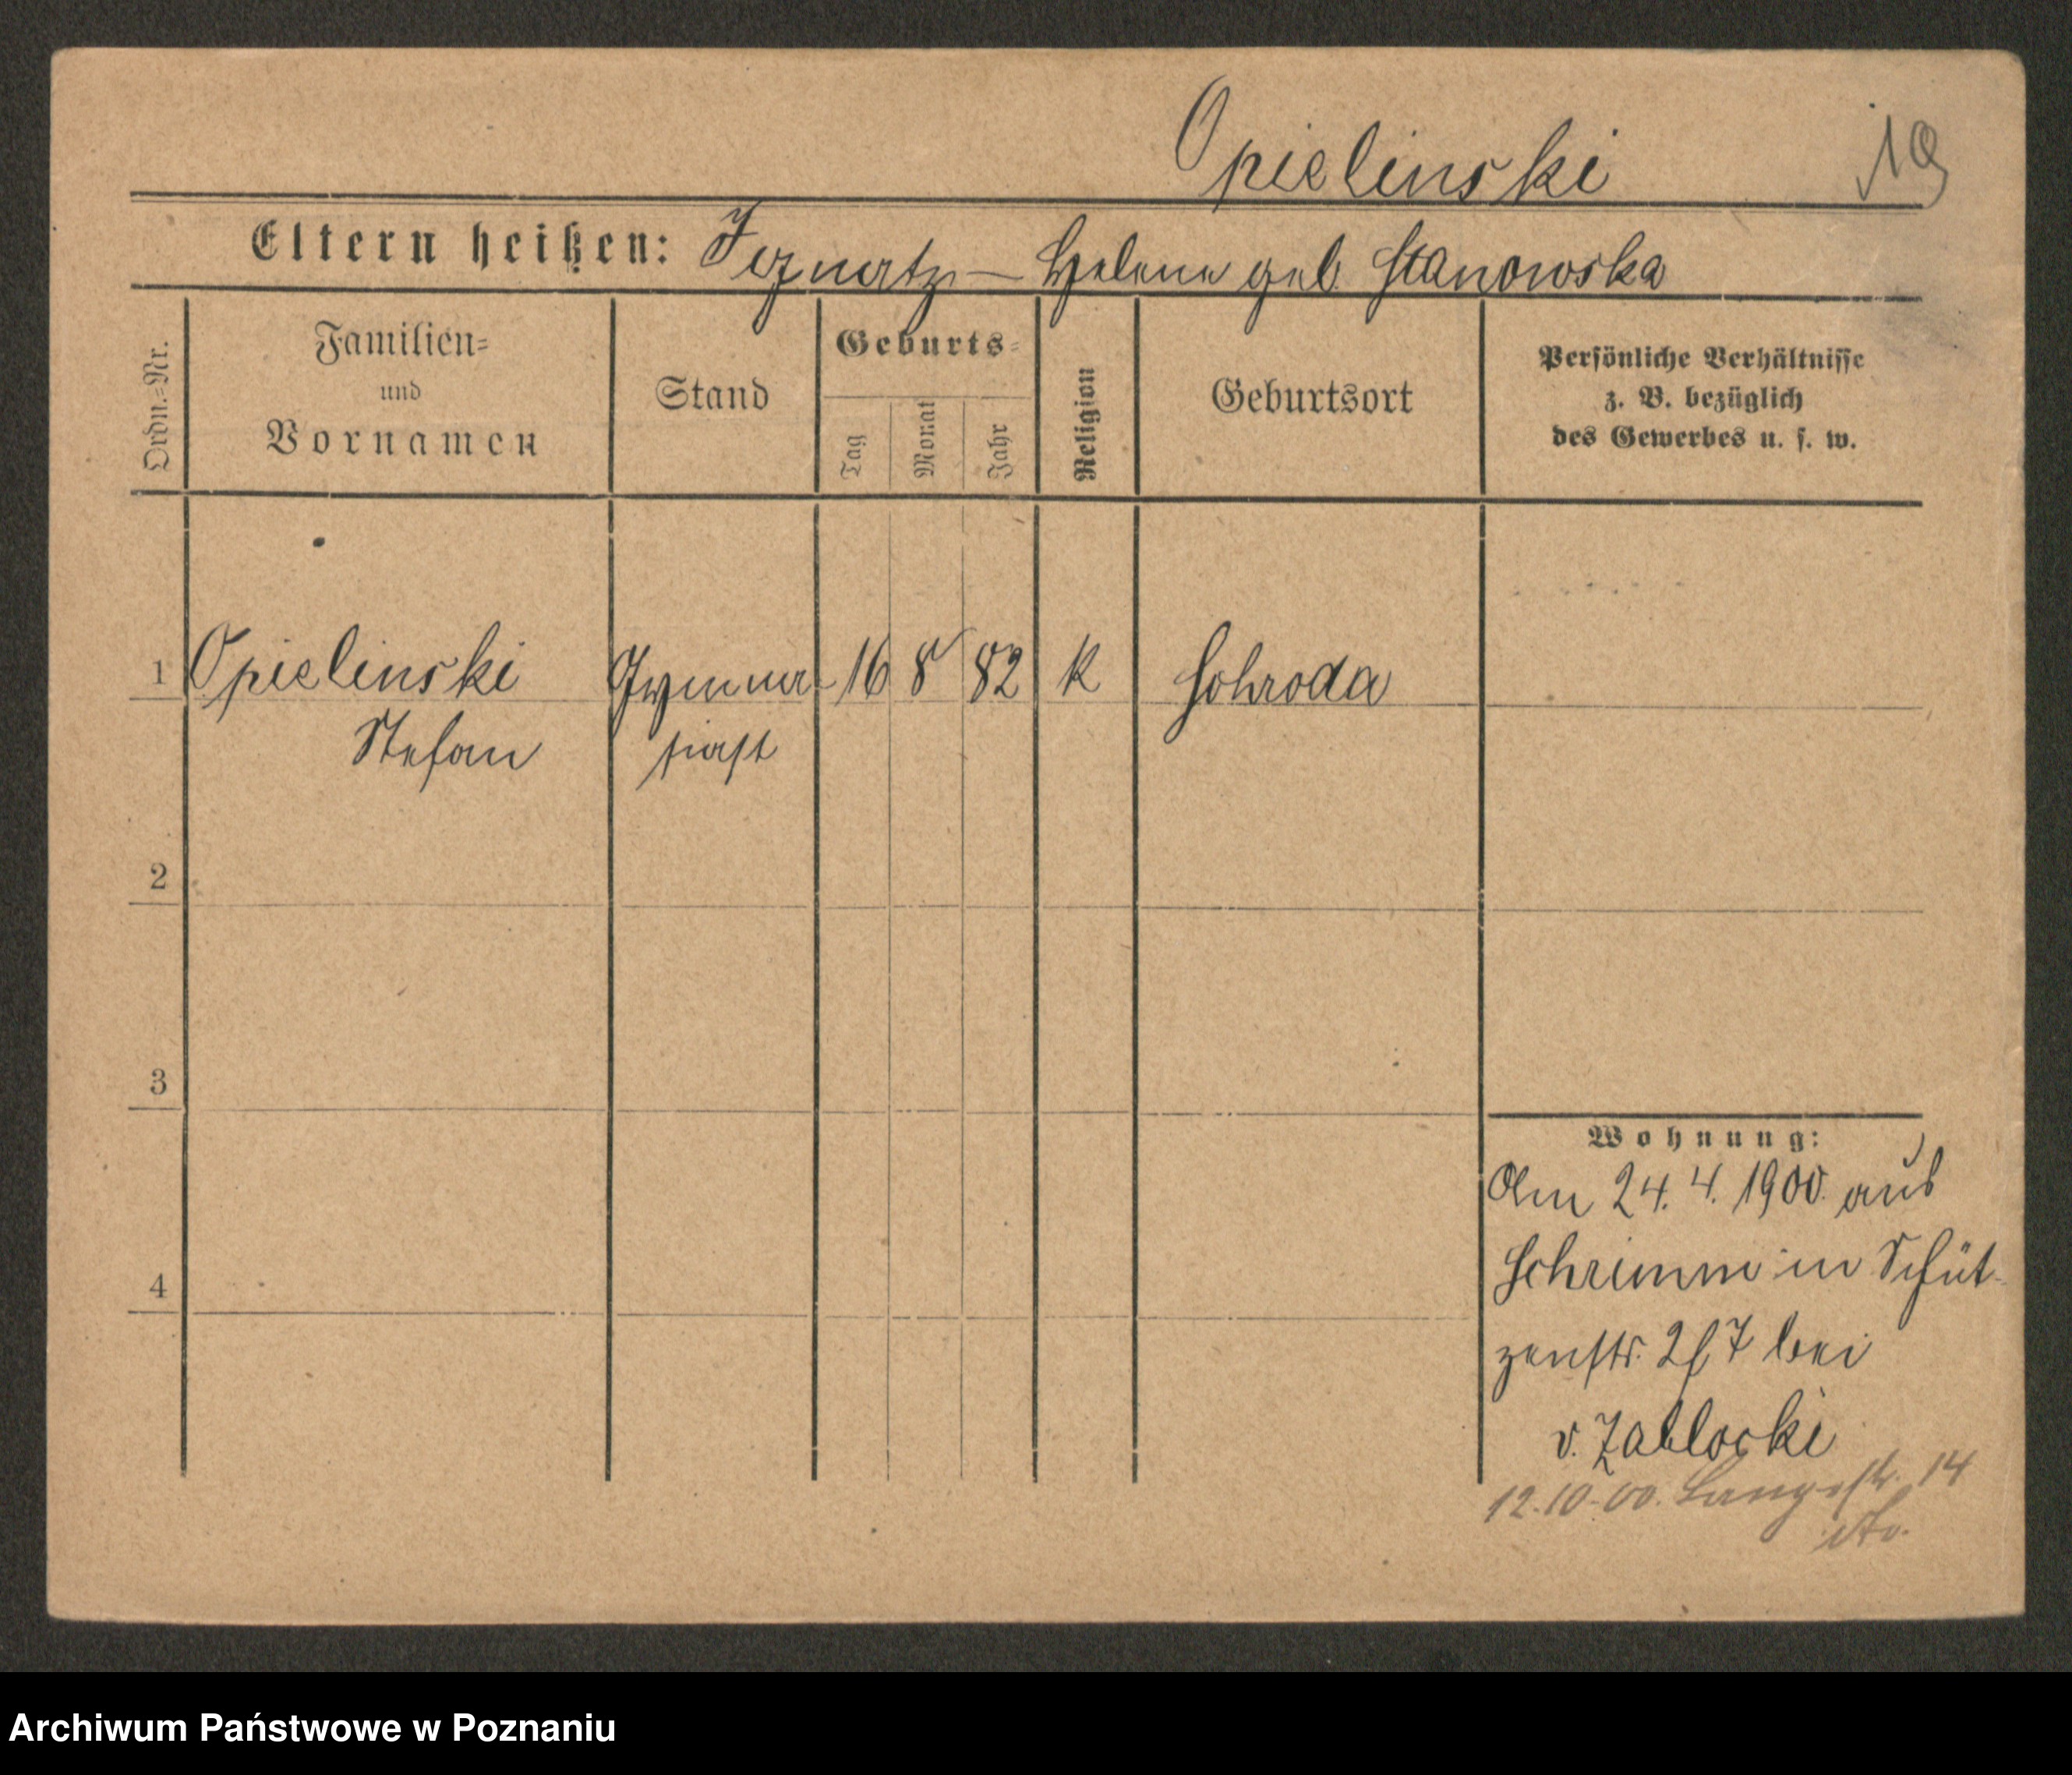 Opielinski
19
Eltern heißen: Ignatz — Helene geb. Stanowska
Ordn.=Nr.
Familien=
und
Vornamen
Stand
Geburts=
Tag
Monat
Jahr
Religion
Geburtsort
Persönliche Verhältnisse
z. B. bezüglich
des Gewerbes u. s. w.
1 Opielinski Gymna- 16 8 82 K Schroda
Stefan siast
2
3
4
Wohnung:
Am 24. 4. 1900. aus
Schrimm in Schüt-
zenstr. 2f7 bei
v. Zablocki
12.10.00. Langestr. 14
Archiwum Państwowe w Poznaniu